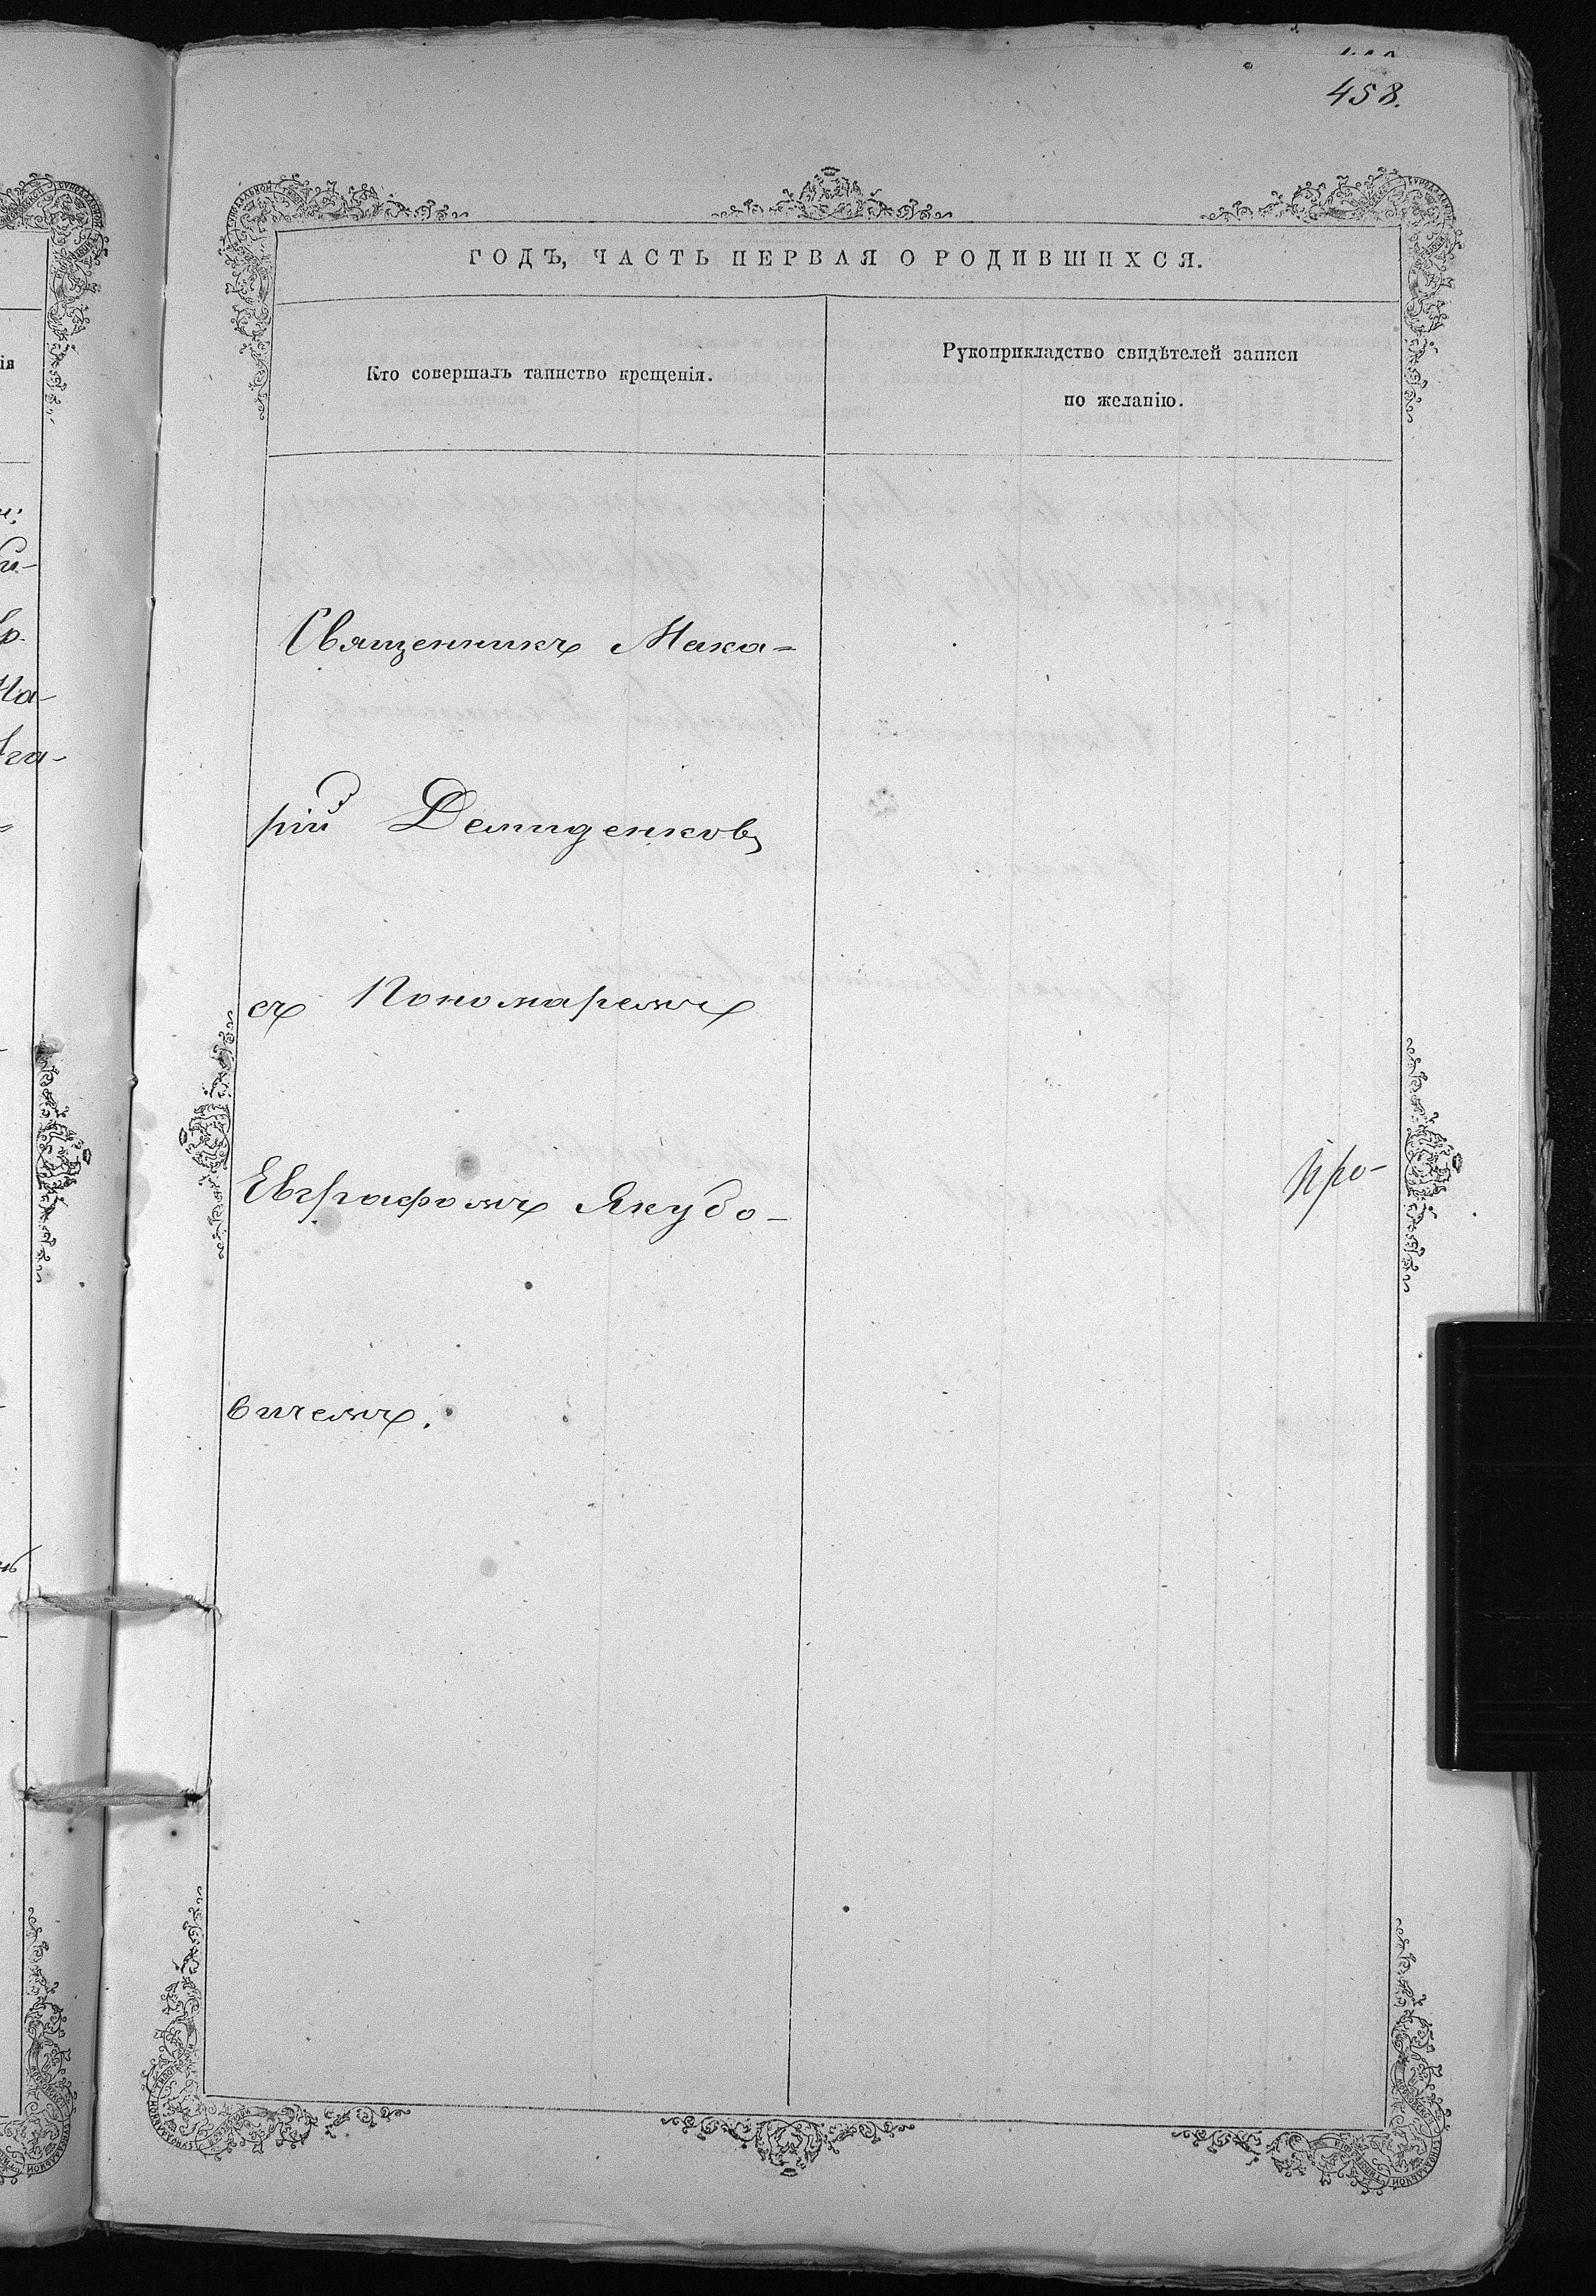 458.
ГОДЪ, ЧАСТЬ ПЕРВАЯ О РОДИВШИХСЯ.
Кто совершалъ таинство крещенія.
Рукоприкладство свидѣтелей записи
по желанію.
Священникъ Мака=
рій Демиденковъ
съ Пономаремъ
Евграфомъ Якубо-
вичемъ.
про-